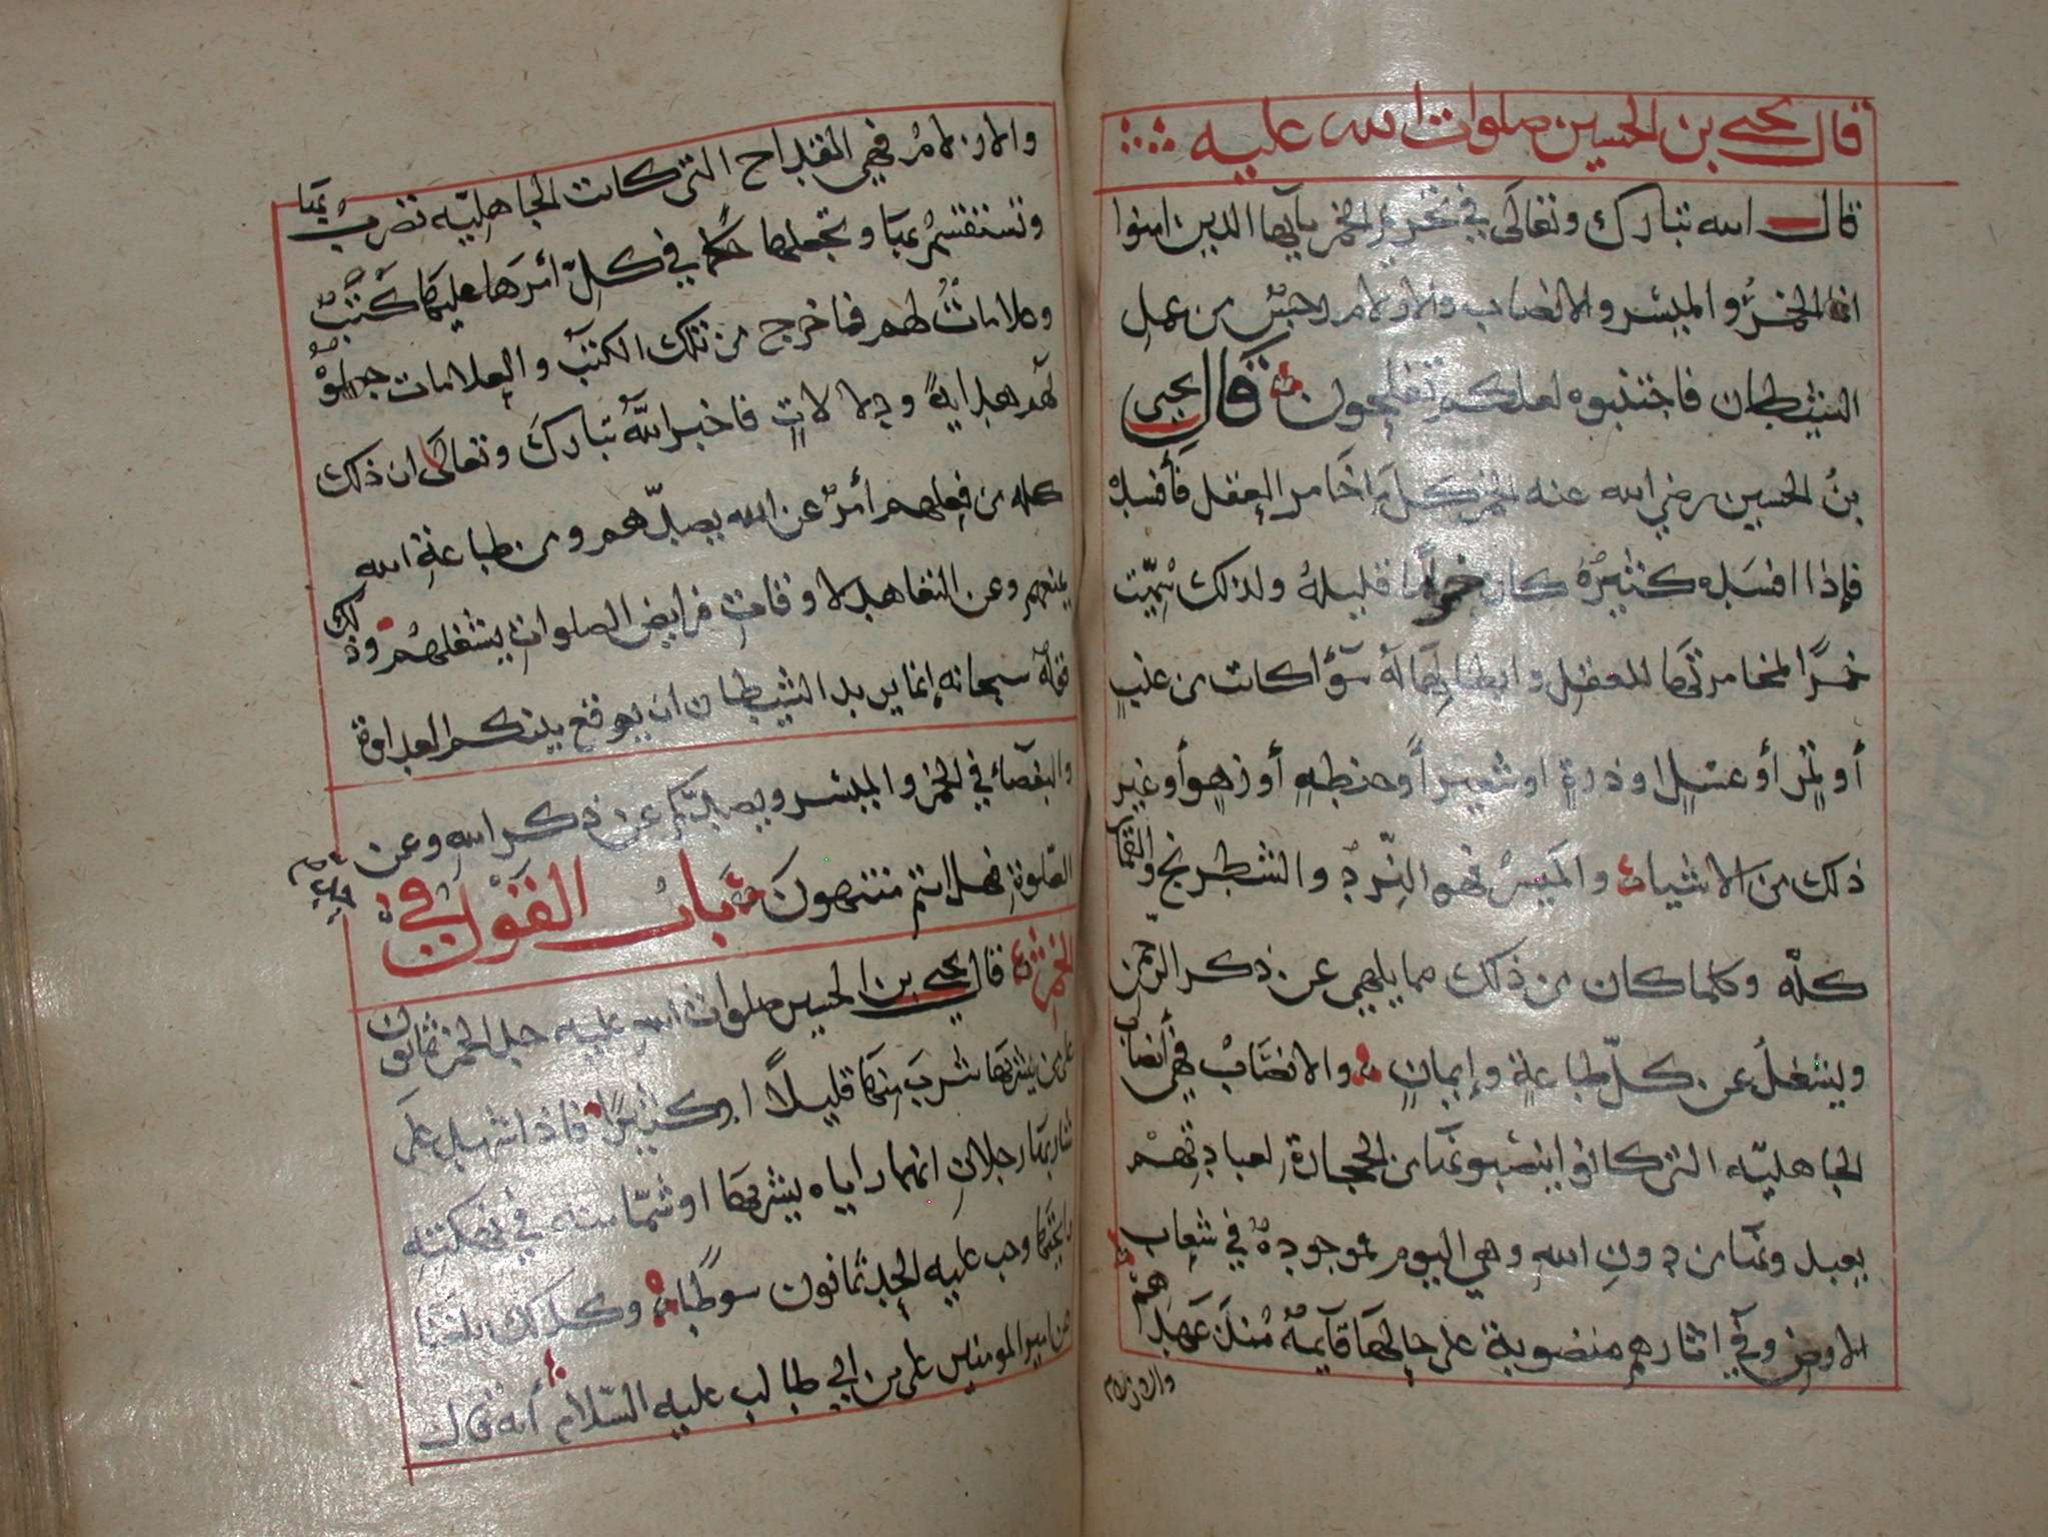 قال يحيى بن الحسين صلوات الله عليه
قال الله تبارك وتعالى في تحريم الخمر يآيها الذين امنوا
انما الخمر والميسر والانصاب والازلام رجس من عمل
الشيطان فاجتنبوه لعلكم تفلحون قال يحيى
بن الحسين رضي الله عنه الخمر كل ما خامر العقل فأفسده
فإذا افسده كثيره كان حراما قليله ولذلك سميت
خمرًا لمخامرتها للعقل وابطالها له سوآ كانت من عنب
أو تمر أو عسل او ذرة او شعير أو حنطه أو زهو أو غير
ذلك من الاشياء والميسر فهو النرد والشطرنج والقمار
كله وكلما كان من ذلك مما يلهي عن ذكر الرحمن
ويشغل عن كل طاعة وإيمان والانصاب فهي أنصاب
الجاهليه التي كانوا ينصبونها من الحجارة لعبادتهم
يعبدونها من دون الله وهي اليوم موجودة في شعاب
الارض وفي اثارهم منصوبة على حالها قآيمة منذ عهدهم
والازلام
والازلام فهي القداح التي كانت الجاهليه تضرب بها
وتستقسم بها وتجعلها حكما في كل أمرها عليها كتب
وعلامات لهم فما خرج من تلك الكتب والعلامات جعلوه
لهم هداية ودلالات فاخبر الله تبارك وتعالى ان ذلك
كله من فعلهم أمر عن الله يصدهم ومن طاعة الله
يمنعهم وعن التعاهد لاوقات فرايض الصلوات يشغلهم وذلك
قوله سبحانه إنما يريد الشيطان ان يوقع بينكم العداوة
والبغضآء في الخمر والميسر ويصدكم عن ذكر الله وعن
الصلوة فهل انتم منتهون باب القول في
الخمر قال يحيى بن الحسين صلوات الله عليه حد الخمر ثمانون
على من شربها شرب منها قليلًا او كثيرًا فاذا شهد على
شاربها رجلان انهما راياه يشربها او شما منه في نكهته
رايحتها وجب عليه الحد ثمانون سوطا وكذلك بلغنا
عن امير المومنين علي بن ابي طالب عليه السلام أنه قال